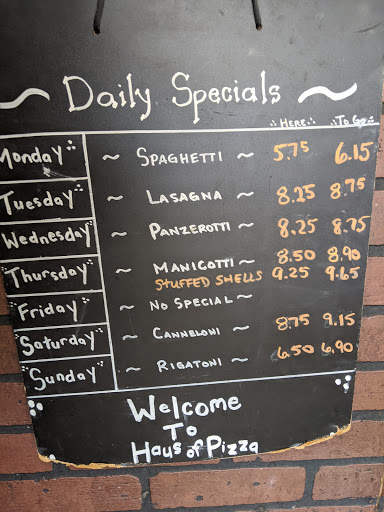 ~ Daily Specials ~
HERE: TO GO:
Monday ~ SPAGHETTI ~ 5.75 6.15
Tuesday ~ LASAGNA ~ 8.25 8.75
Wednesday ~ PANZEROTTI ~ 8.25 8.75
Thursday ~ MANICOTTI ~ 8.50 8.90
STUFFED SHELLS 9.25 9.65
Friday ~ NO SPECIAL ~
Saturday ~ CANNELONI ~ 8.75 9.15
Sunday ~ RIGATONI ~ 6.50 6.90
Welcome
To
Haus of Pizza